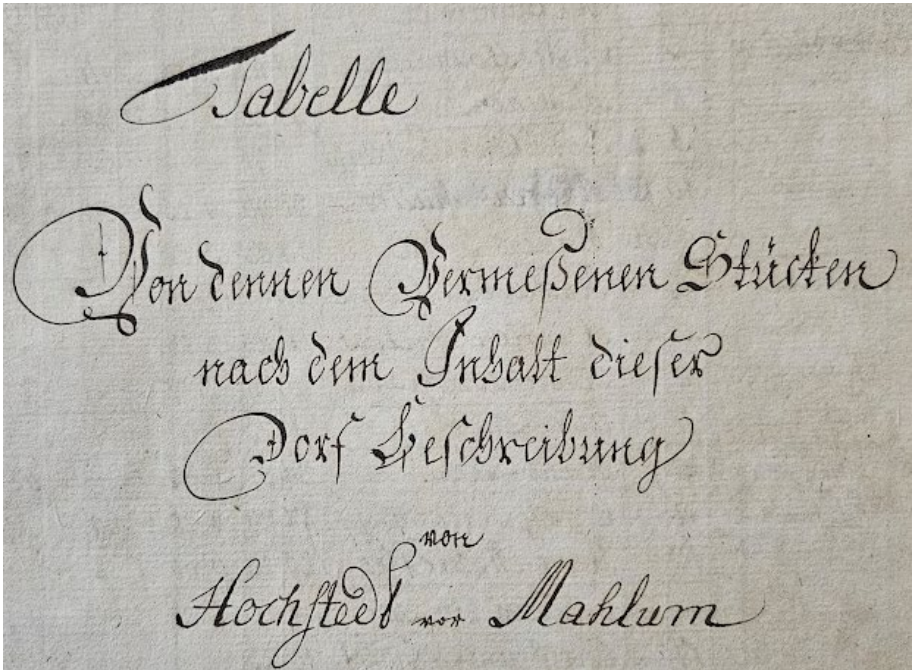 Tabelle
Von dennen Vermeßenen Stücken
nach dem Inhalt dieser
Dorf Beschreibung
von
Hochstedt vor Mahlum